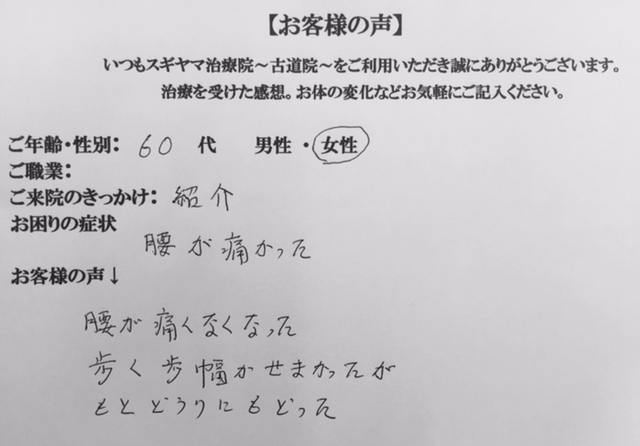 【お客様の声】
いつもスギヤマ治療院～古道院～をご利用いただき誠にありがとうございます。
治療を受けた感想。お体の変化などお気軽にご記入ください。
ご年齢・性別： 60 代 男性 ・ 女性
ご職業：
ご来院のきっかけ： 紹介
お困りの症状
腰が痛かった
お客様の声↓
腰が痛くなくなった
歩く歩幅かせまかったが
もとどうりにもどった